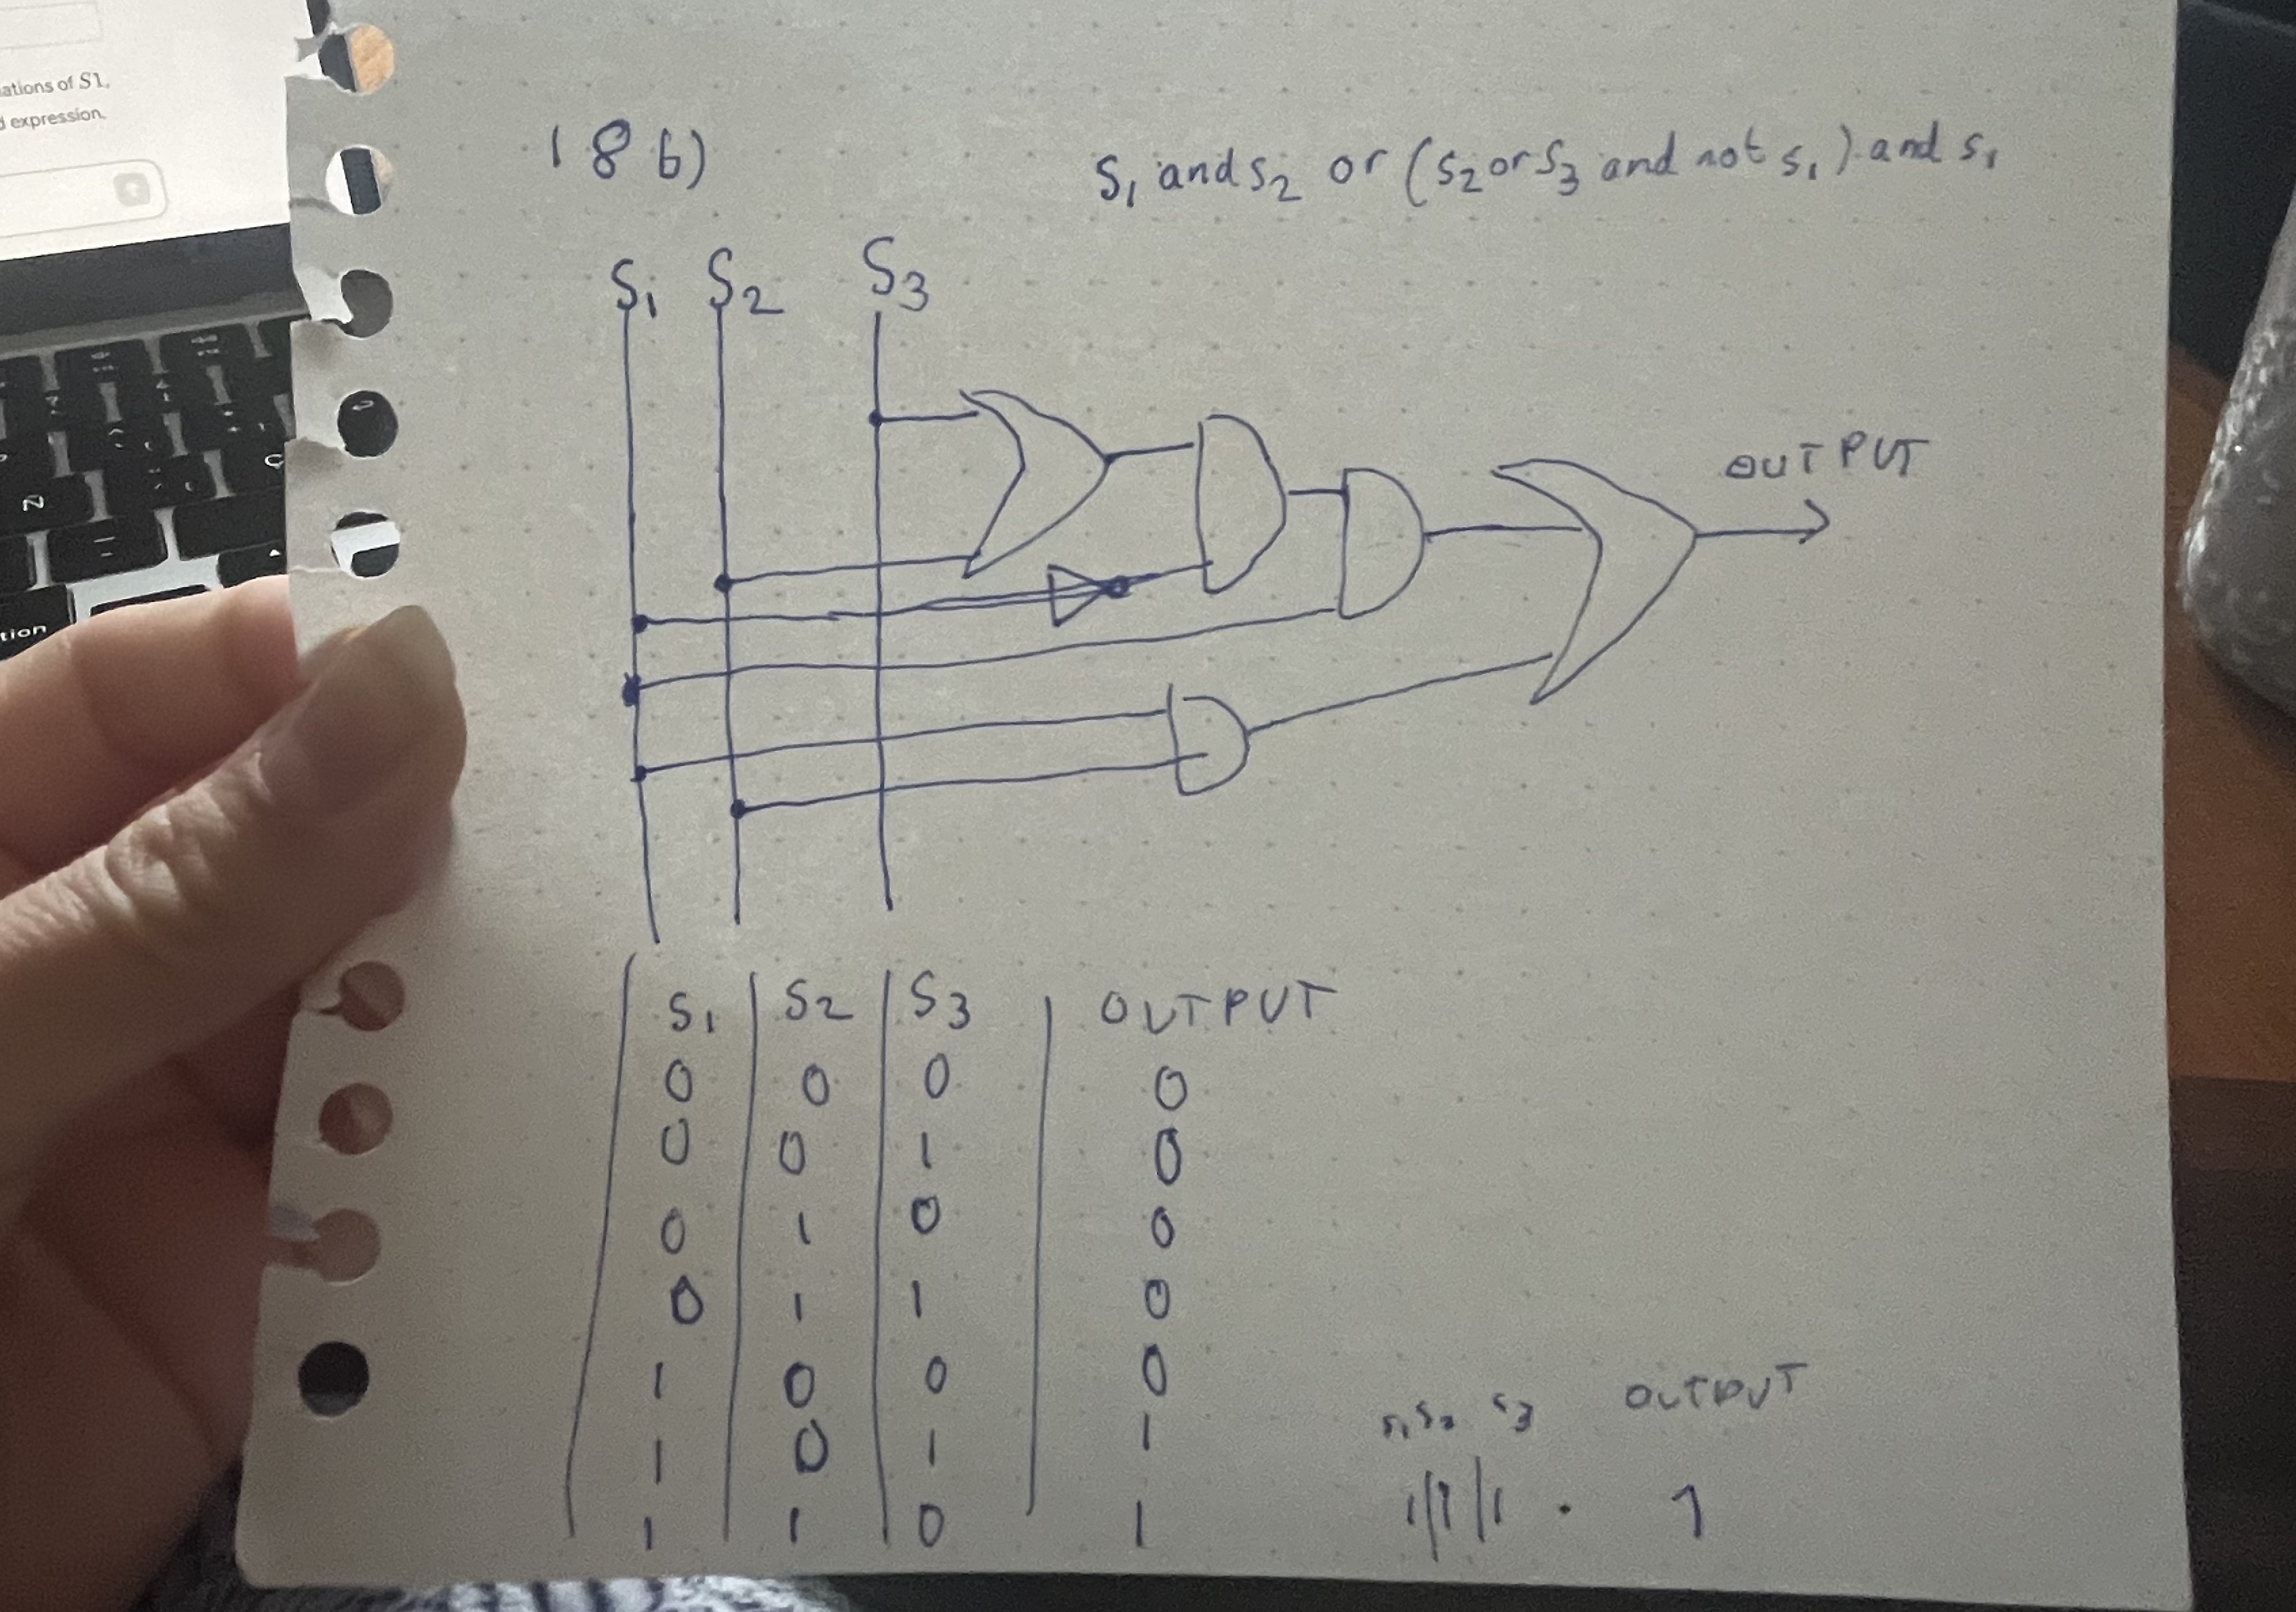 ations of S1,
d expression.
18 b)
S1 and S2 or (S2 or S3 and not S1) and S1
S1 S2 S3
OUTPUT
N
tion
S1 S2 S3 OUTPUT
0 0 0 0
0 0 1 0
0 1 0 0
0 1 1 0
1 0 0 0
1 0 1 1
1 1 0 1
S1 S2 S3 OUTPUT
1 1 1 1